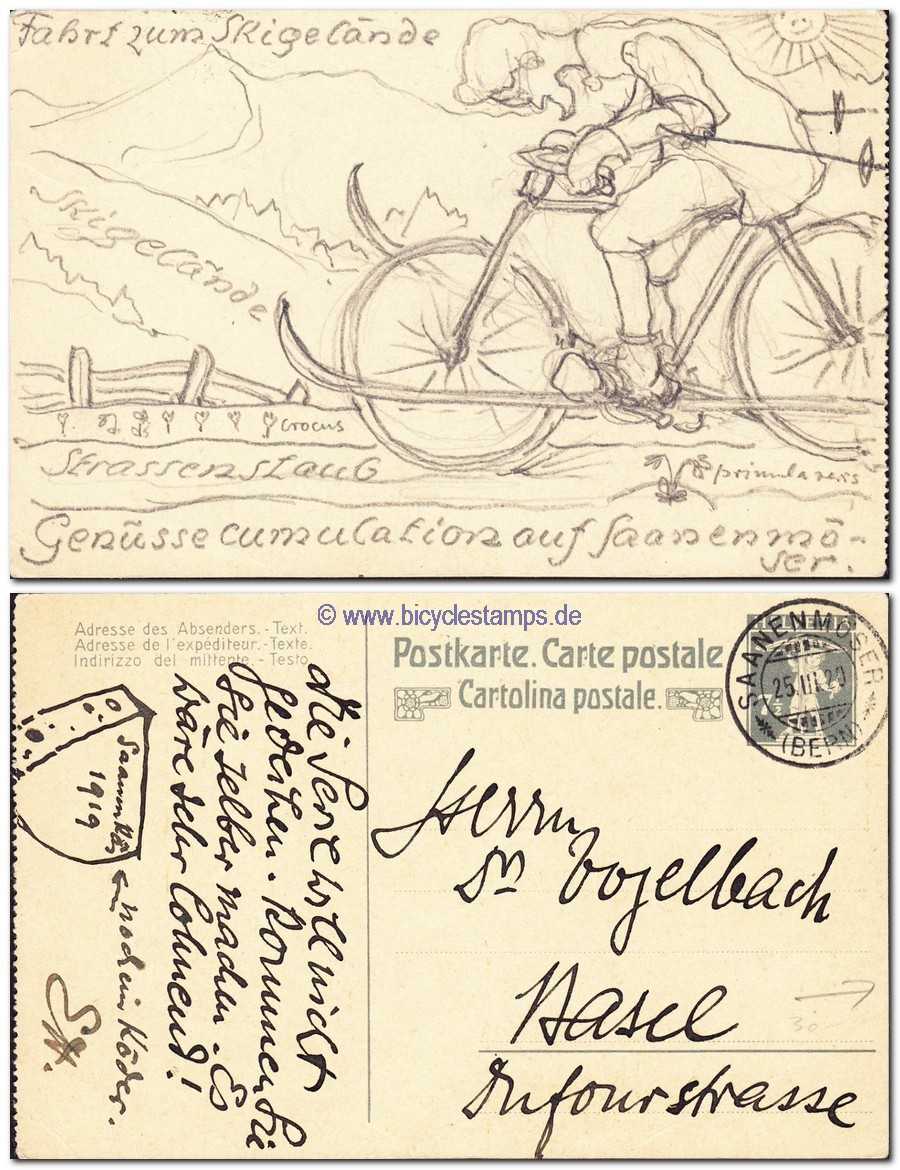 Fahrt zum Skigelände
Skigelände
crocus
Strassenstaub
primula veris
Genüsse cumulation auf Saanenmö-
ser.
© www.bicyclestamps.de
Adresse des Absenders. - Text.
Adresse de l'expéditeur. - Texte.
Indirizzo del mittente. - Testo.
Postkarte. Carte postale
Cartolina postale.
SAANENMÖSER
25.III.20
(BERN)
7½
Herrn
Dr Vogelbach
Basel
Dufourstrasse
30
die will nicht
gedeihen. Kommen Sie
Sie selber machen. Es
wäre sehr lohnend!
1919
noch ein Köder.